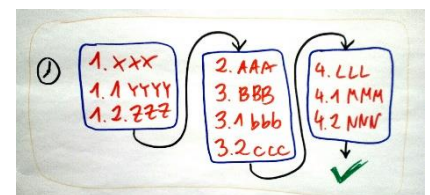 1. XXX
1.1 YYYY
1.2.ZZZ
2. AAA
3. BBB
3.1 bbb
3.2 ccc
4. LLL
4.1 MMM
4.2 NNN